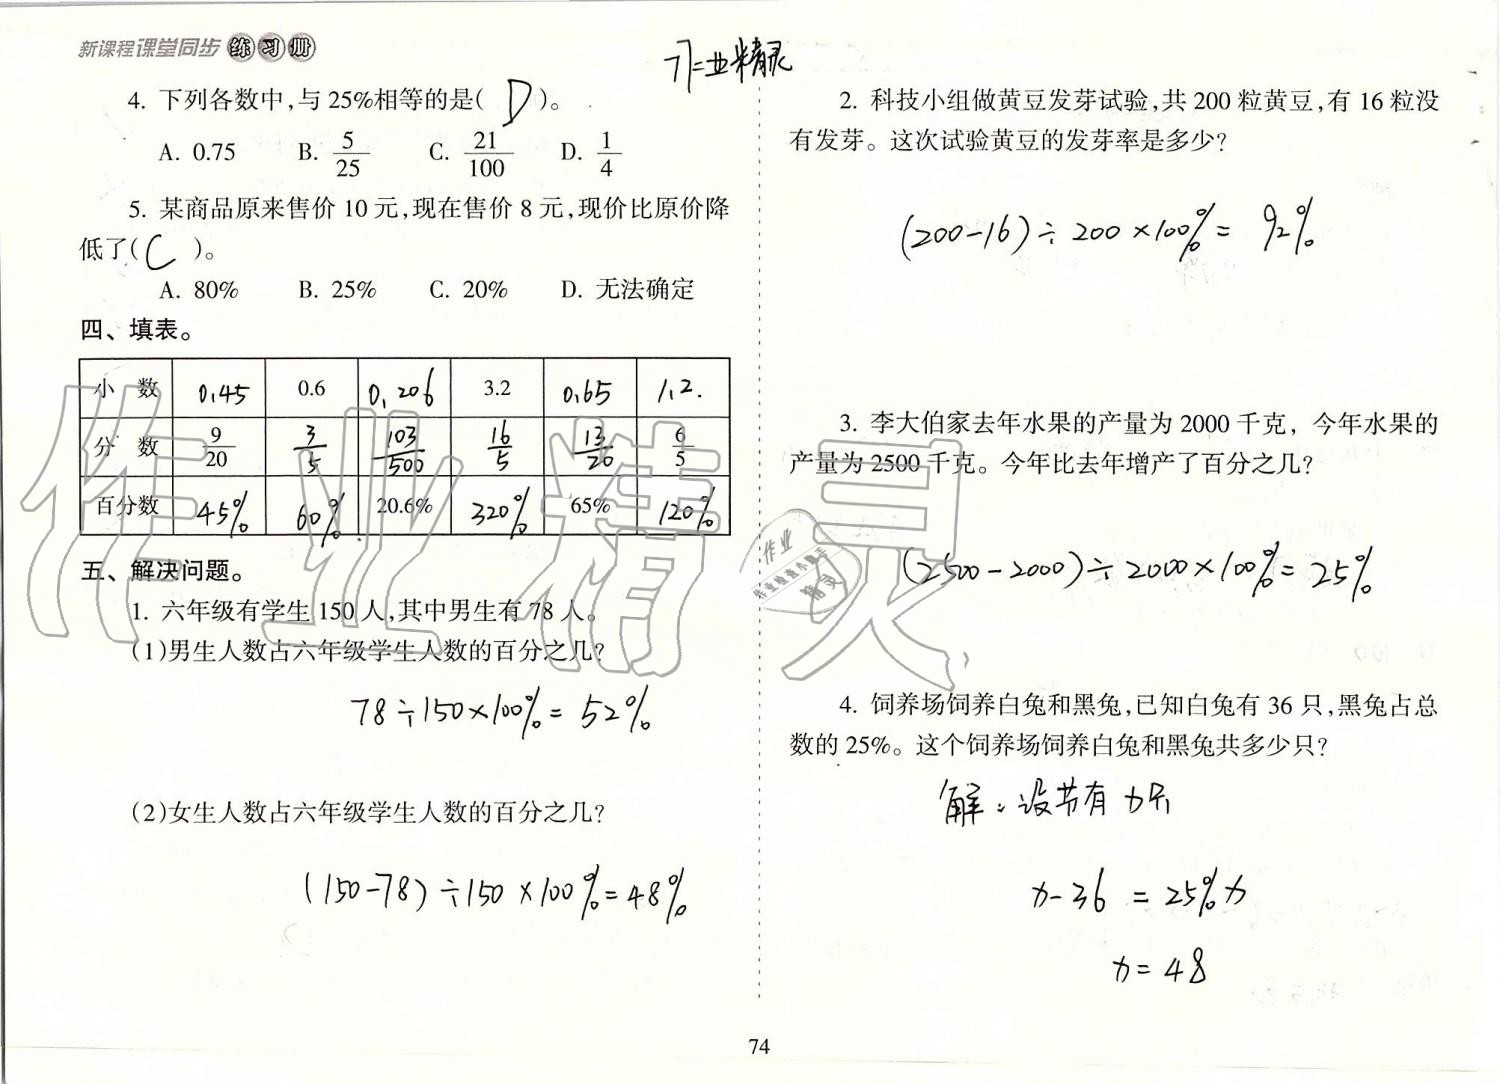 新课程课堂同步练习册
作业精灵
4. 下列各数中,与25%相等的是( D )。
A. 0.75 B. 5/25 C. 21/100 D. 1/4
5. 某商品原来售价10元,现在售价8元,现价比原价降
低了( C )。
A. 80% B. 25% C. 20% D. 无法确定
四、填表。
小 数 0.45 0.6 0.206 3.2 0.65 1.2.
分 数 9/20 3/5 103/500 16/5 13/20 6/5
百分数 45% 60% 20.6% 320% 65% 120%
五、解决问题。
1. 六年级有学生150人,其中男生有78人。
(1)男生人数占六年级学生人数的百分之几?
78÷150×100%=52%
(2)女生人数占六年级学生人数的百分之几?
(150-78)÷150×100%=48%
2. 科技小组做黄豆发芽试验,共200粒黄豆,有16粒没
有发芽。这次试验黄豆的发芽率是多少?
(200-16)÷200×100%= 92%
3. 李大伯家去年水果的产量为2000千克, 今年水果的
产量为2500千克。今年比去年增产了百分之几?
(2500-2000)÷2000×100%=25%
4. 饲养场饲养白兔和黑兔,已知白兔有36只,黑兔占总
数的25%。这个饲养场饲养白兔和黑兔共多少只?
解:设共有x只
x-36=25%x
x=48
作业精灵
作业
作业检查小助手
精灵
74